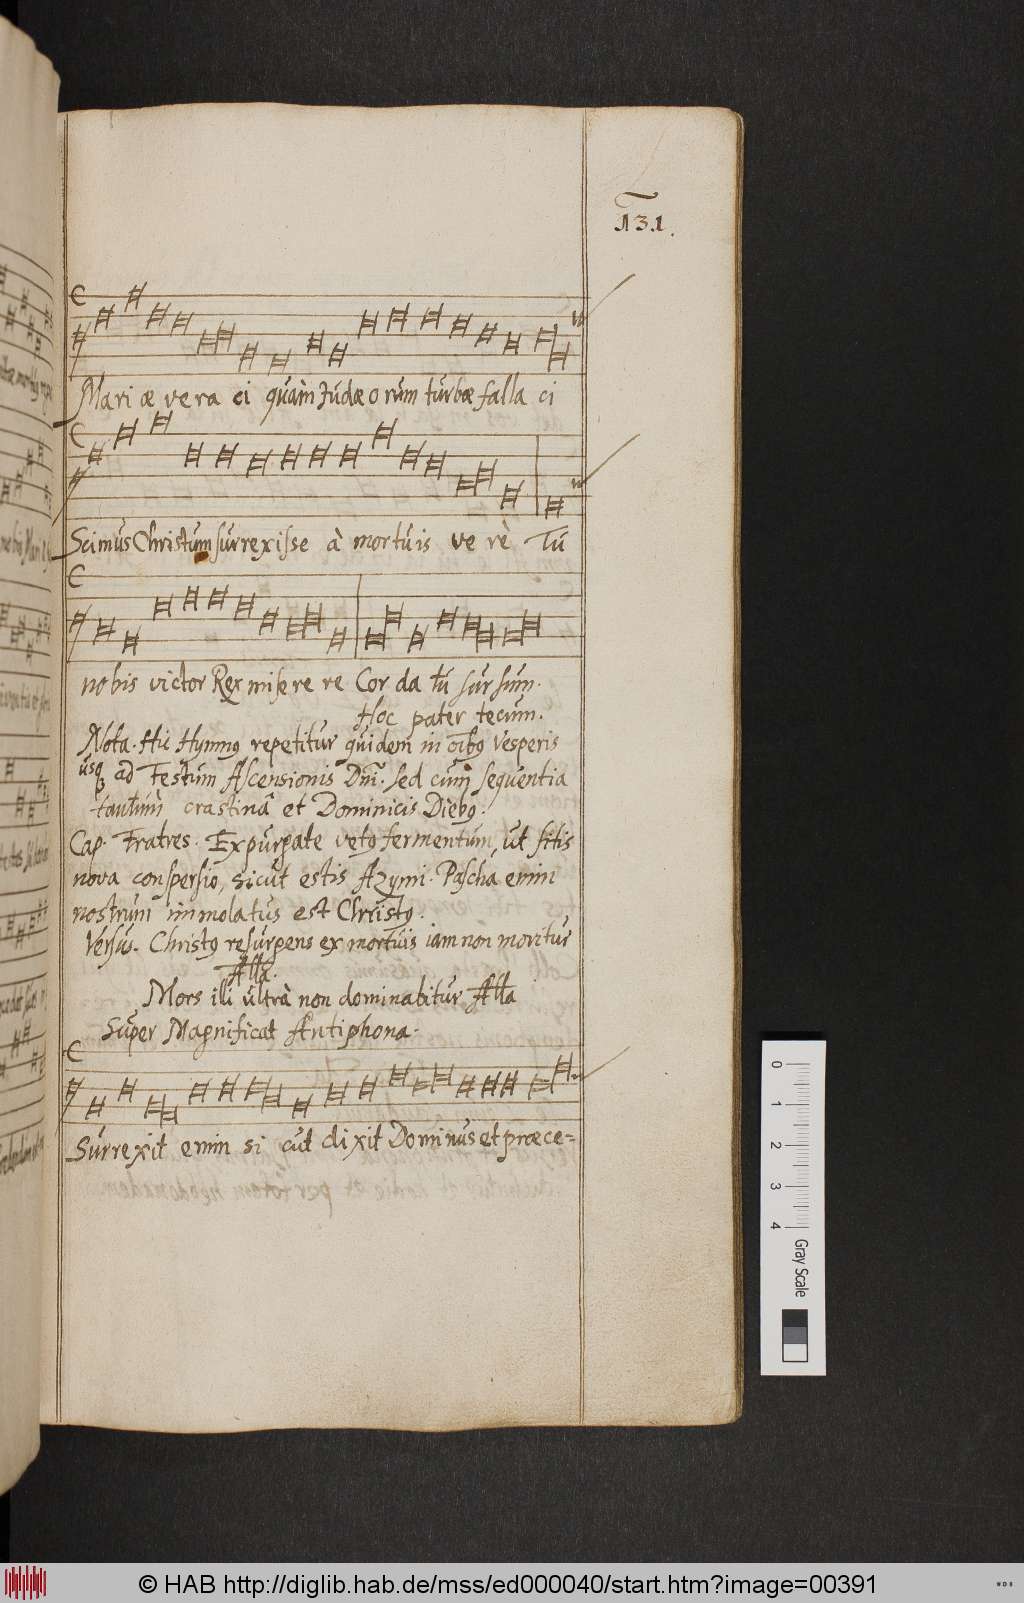 131.
Mari æ vera ci quàm Judæo rum turbæ falla ci
Scimus Christum surrexisse à mortuis ve rè Tu
nobis victor Rex mise re re Cor da tu sursum.
Hoc pater tecum.
Nota. Hic Hymnꝯ repetitur quidem in oībꝯ Vesperis
usqꝫ ad Festum Ascensionis Dnī. sed cum sequentia
tantum crastinâ et Dominicis Diebꝯ.
Cap. Fratres. Expurgate vetꝯ fermentum, ut sitis
nova conspersio, sicut estis Azymi. Pascha enim
nostrum immolatus est Christꝯ.
Versus. Christꝯ resurgens ex mortuis iam non moritur
Alla.
Mors illi ultrà non dominabitur Alla
Super Magnificat Antiphona.
Surrexit enim si cut dixit Dominus et præce=
0 1 2 3 4 Gray Scale
© HAB http://diglib.hab.de/mss/ed000040/start.htm?image=00391